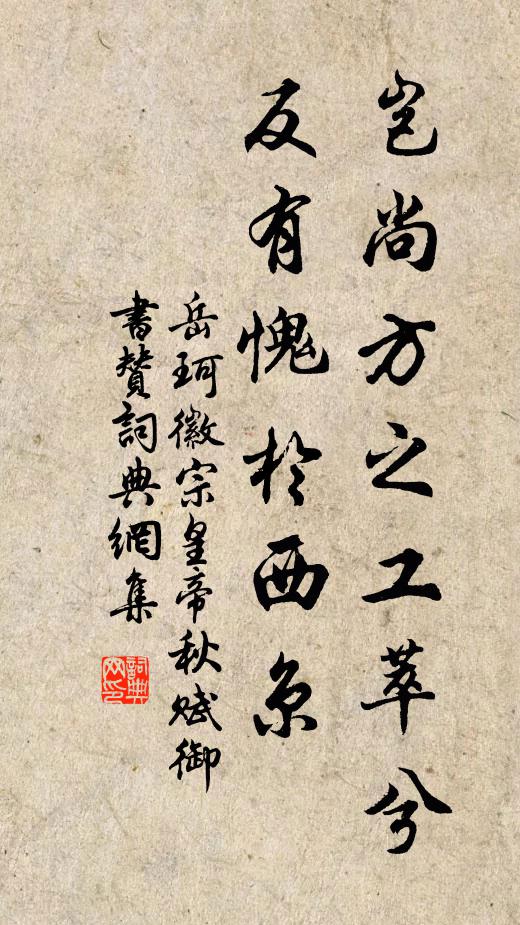 岂尚方之工萃兮
反有愧於西京
岳珂徽宗皇帝秋赋御
書贊詞典網集
詞典
网印